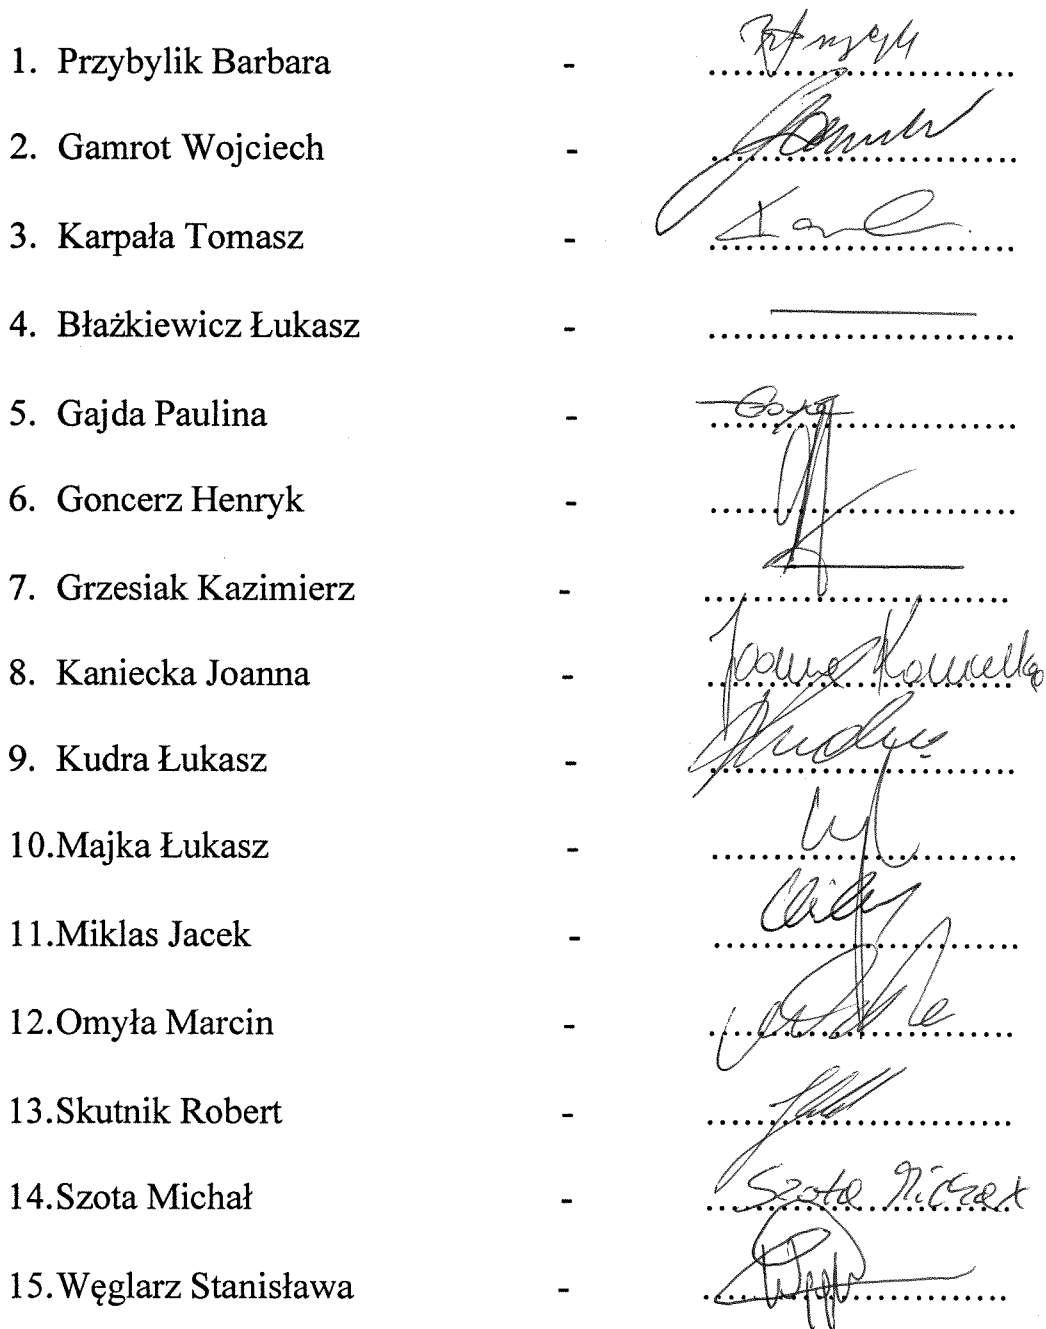 1. Przybylik Barbara - ..............................
2. Gamrot Wojciech - ..............................
3. Karpała Tomasz - ..............................
4. Błażkiewicz Łukasz - ..............................
5. Gajda Paulina - ..............................
6. Goncerz Henryk - ..............................
7. Grzesiak Kazimierz - ..............................
8. Kaniecka Joanna - Joanna Kaniecka
9. Kudra Łukasz - ..............................
10.Majka Łukasz - ..............................
11.Miklas Jacek - ..............................
12.Omyła Marcin - ..............................
13.Skutnik Robert - ..............................
14.Szota Michał - Szota Michał
15.Węglarz Stanisława - ..............................